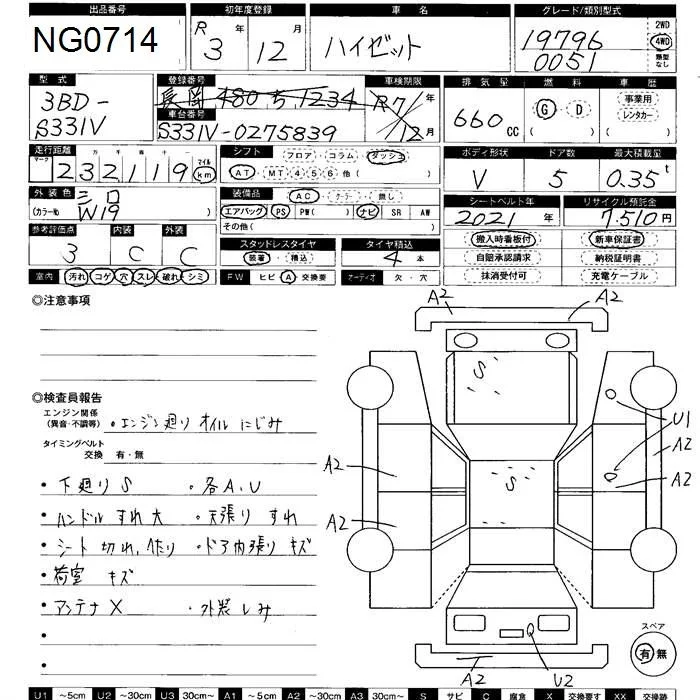 出品番号 初年度登録 車名 グレード/類別型式
NG0714 R 3年 12月 ハイゼット 19796 0051 2WD 4WD 類型なし
型式 登録番号 車検期限 排気量 燃料 車歴
3BD-S331V 長岡 480 ち 1234 R7年 12月 660cc G・D ( ) 事業用 レンタカー ( )
車台番号
S331V-0275839
走行距離 シフト ボディ形状 ドア数 最大積載量
マーク 十万千百十 232119 マイル km フロア・コラム・ダッシュ V 5 0.35t
AT・MT(4・5・6 他)
外装色 三口 装備品 AC・クーラー・無し シートベルト年 リサイクル預託金
(カラーNo W19 ) エアバッグ PS PW( ) ナビ SR AW 2021年 7,510円
その他( )
参考評価点 内装 外装 スタッドレスタイヤ タイヤ積込 搬入時看板付 新車保証書
3 C C 装着・積込 4本 自賠承認請求 納税証明書
室内 汚れ コゲ 穴 スレ 破れ シミ FW ヒビ A 交換要 オーディオ 欠・穴 抹消受付可 充電ケーブル
◎注意事項
A2 A2
◎検査員報告
エンジン関係
(異音・不調等) ・エンジン廻り オイル にじみ
タイミングベルト
交換 有・無
・下廻り S ・各A、U
・ハンドル すれ大 ・天張り すれ
・シート 切れ、へたり ・ドア内張り キズ
・荷室 キズ
・アンテナ X ・外装 しみ
S
U1
A2
A2 S A2
A2
スペア
有 無
A2 U2
U1 ～5cm U2 ～30cm U3 30cm～ A1 ～5cm A2 ～30cm A3 30cm～ S サビ C 腐食 X 交換要す XX 交換跡